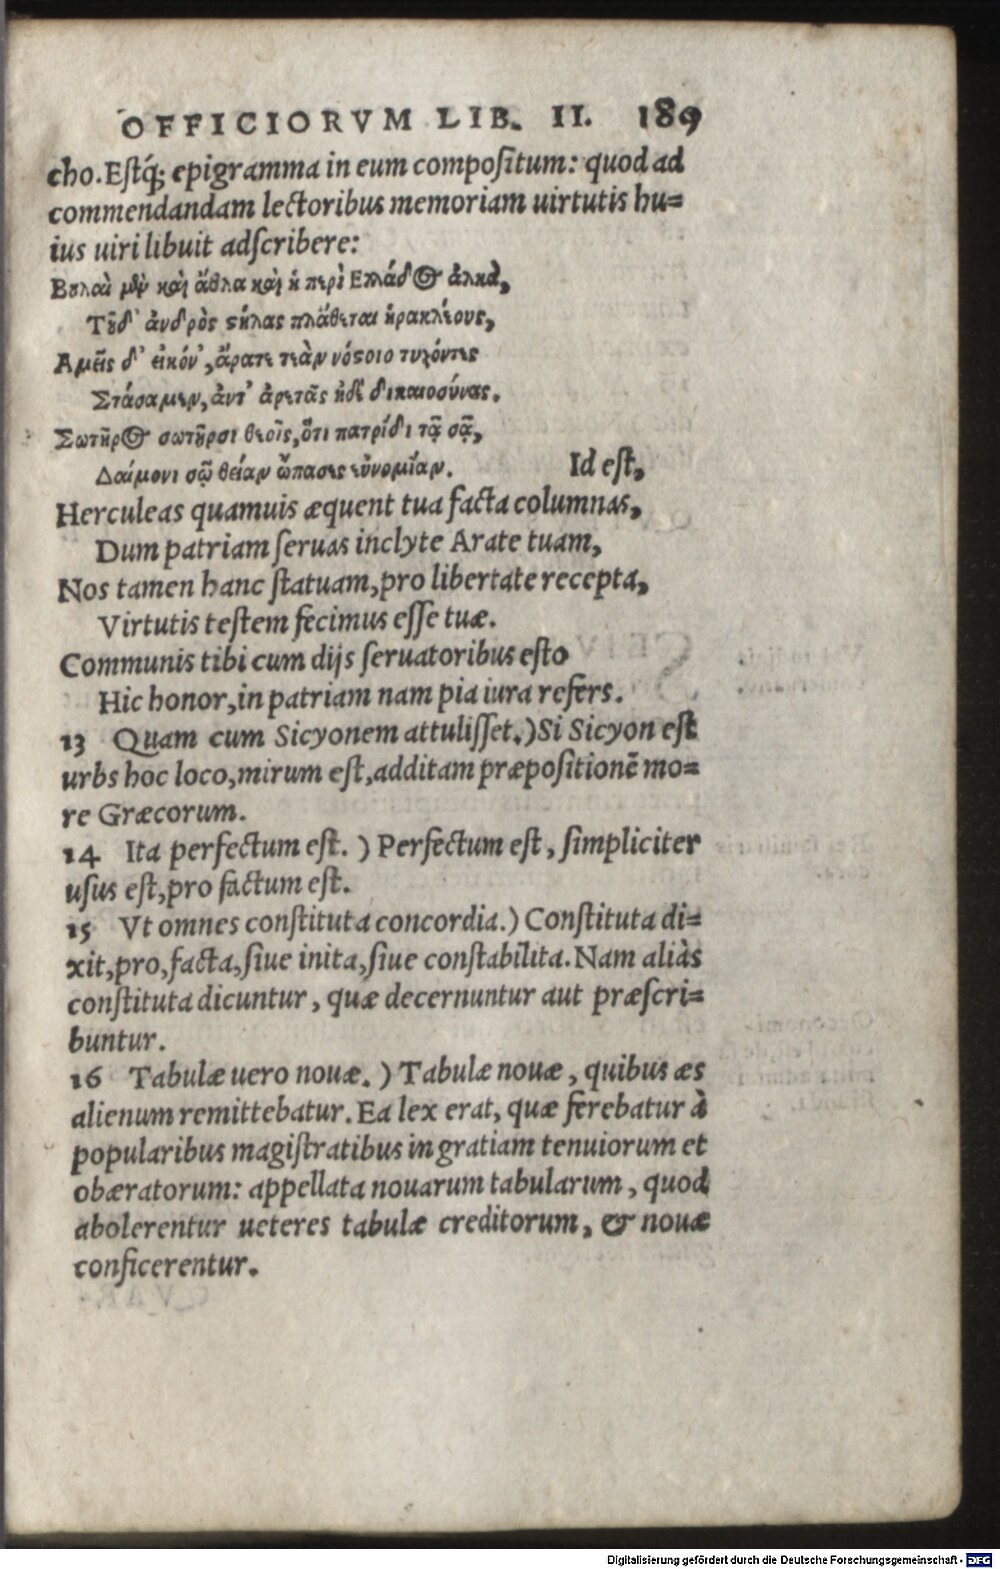 OFFICIORVM LIB. II. 189
cho. Estq́; epigramma in eum compositum: quod ad
commendandam lectoribus memoriam uirtutis hu=
ius uiri libuit adscribere:
Βουλαὶ μὲν καὶ ἄθλα καὶ ἁ περὶ Ελλάδος ἀλκὰ,
Τοῦδ' ἀνδρὸς στήλας πλάθεται ἡρακλέους,
Αμεῖς δ' εἰκόν', ἄρατε τεὰν νόστοιο τυχόντες
Στάσαμεν, ἀντ' ἀρετᾶς ἠδὲ δικαιοσύνας.
Σωτῆρος σωτῆρσι θεοῖς, ὅτι πατρίδι τᾷ σᾷ,
Δαίμονι σῷ θείαν ὤπασες εὐνομίαν. Id est,
Herculeas quamuis æquent tua facta columnas,
Dum patriam seruas inclyte Arate tuam,
Nos tamen hanc statuam, pro libertate recepta,
Virtutis testem fecimus esse tuæ.
Communis tibi cum dijs seruatoribus esto
Hic honor, in patriam nam pia iura refers.
13 Quam cum Sicyonem attulisset.) Si Sicyon est
urbs hoc loco, mirum est, additam præpositionē mo=
re Græcorum.
14 Ita perfectum est. ) Perfectum est, simpliciter
usus est, pro factum est.
15 Vt omnes constituta concordia.) Constituta di=
xit, pro, facta, siue inita, siue constabilita. Nam aliàs
constituta dicuntur, quæ decernuntur aut præscri=
buntur.
16 Tabulæ uero nouæ. ) Tabulæ nouæ, quibus æs
alienum remittebatur. Ea lex erat, quæ ferebatur à
popularibus magistratibus in gratiam tenuiorum et
obæratorum: appellata nouarum tabularum, quod
abolerentur ueteres tabulæ creditorum, & nouæ
conficerentur.
Digitalisierung gefördert durch die Deutsche Forschungsgemeinschaft - DFG